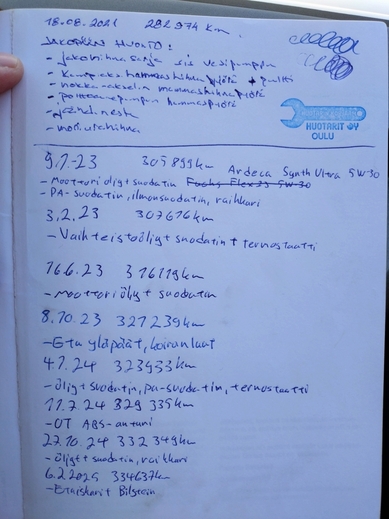 18.08.2021 282 974 km.
JAKOPÄÄN HUOLTO:
- jakohihna sarja sis vesipumppu
- Kampiakselin hammashihnapyörä + pultti
- nokka-akselin hammashihnapyörä
- polttoainepumpun hammaspyörä
- jäähd.neste
- monurahihna
HUOLTORIT OY
OULU
9.1-23 305899km Ardeca Synth Ultra 5W-30
- Moottoriöljyt suodatin Fuchs Flex 23 5W-30
- PA-suodatin, ilmansuodatin, raikkari
3.2.23 307616km
- Vaihteistoöljyt suodatin + termostaatti
16.6.23 316119km
- Moottoriöljyt suodatin
8.10.23 321239km
- Etu yläpäät, koiranluut
4.1.24 323933km
- Öljyt suodatin, pa-suodatin, termostaatti
11.7.24 329 335km
- OT ABS-anturi
27.10.24 332 349km
- öljyt + suodatin, raikkari
6.2.2025 334637km
- Etuiskarit Bilstein